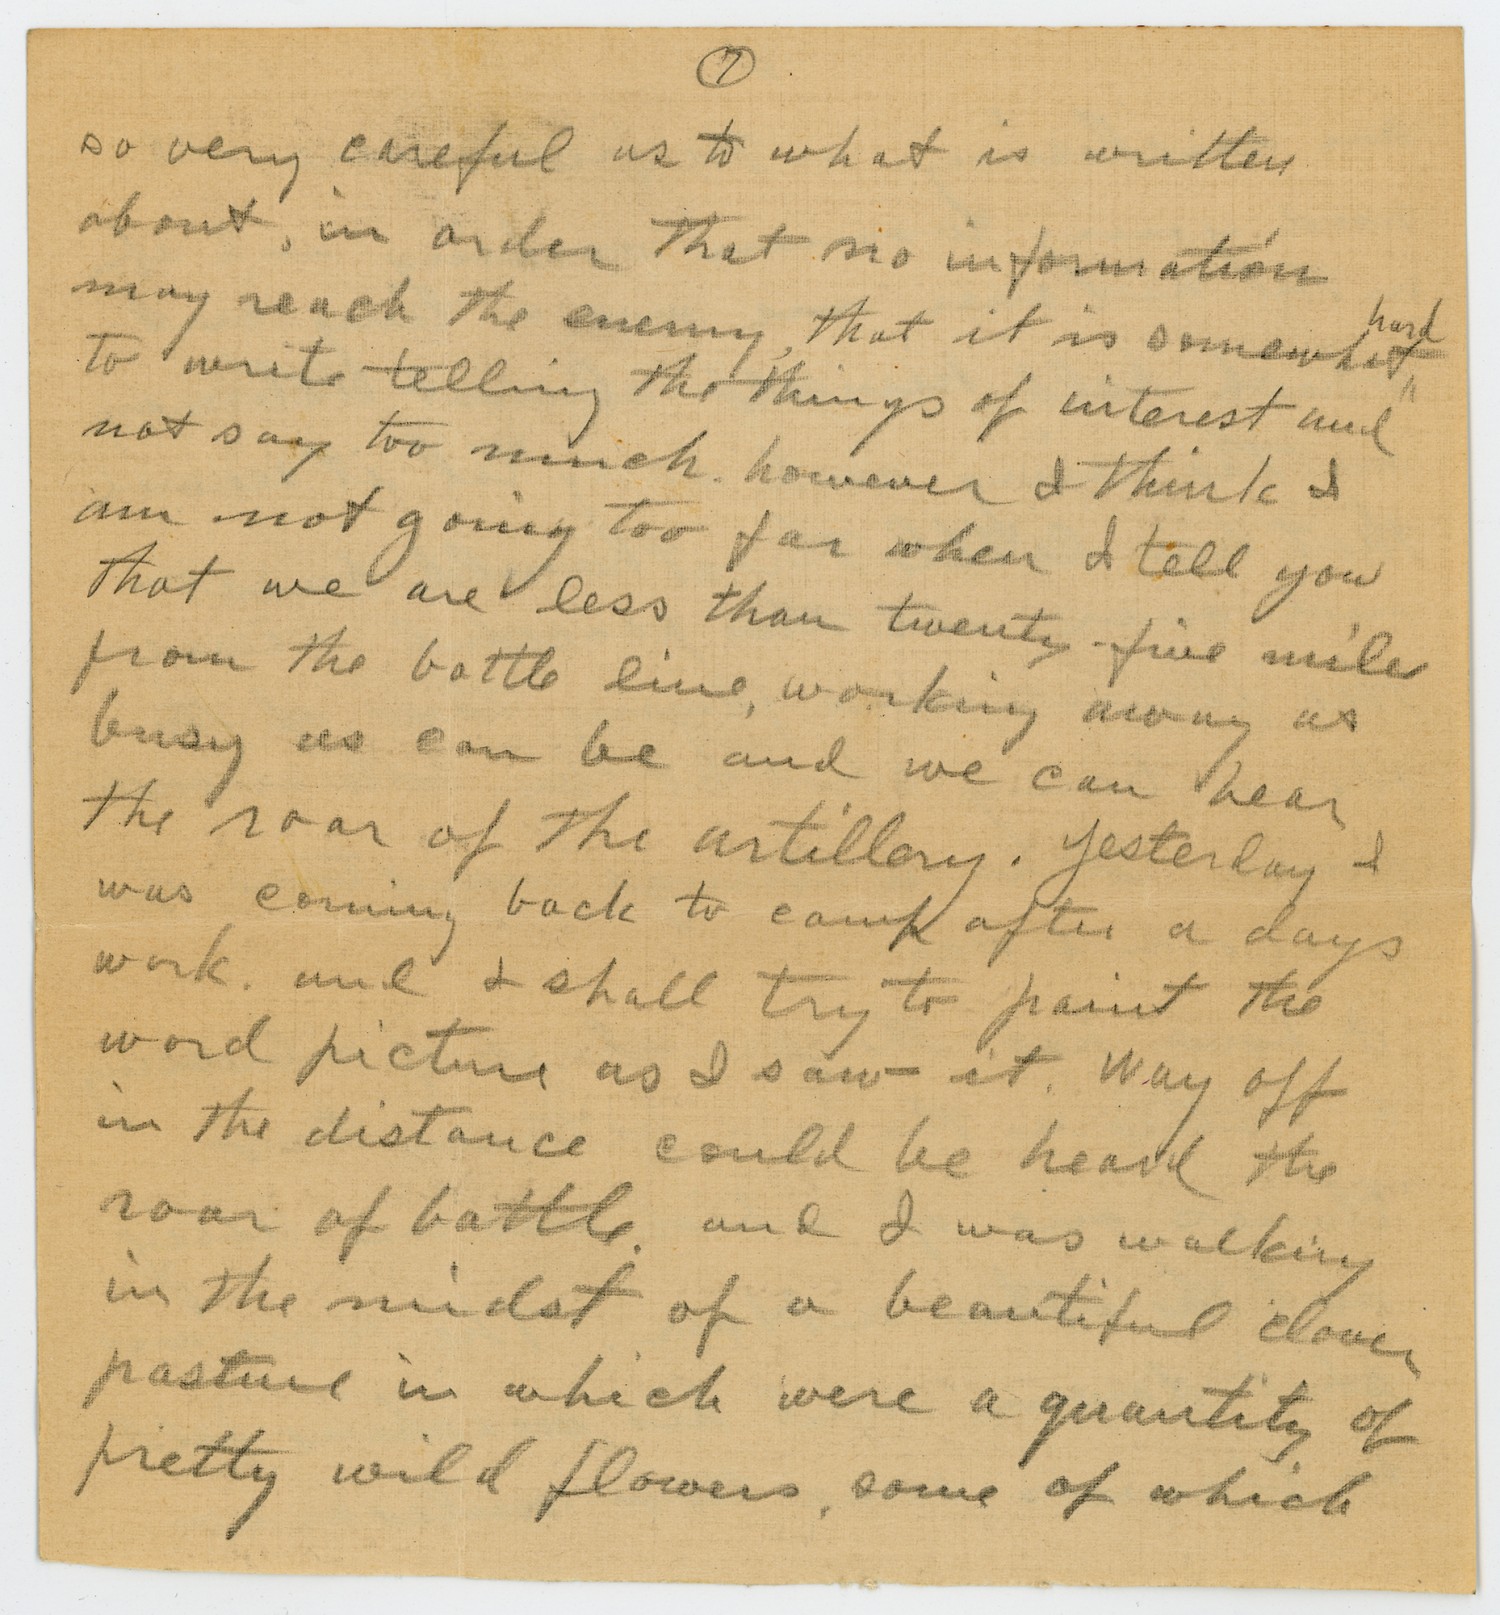 7
so very careful as to what is written
about, in order that no information
may reach the enemy, that it is somewhat hard
to write telling the things of interest and
not say too much. however I think I
am not going too far when I tell you
that we are less than twenty-five miles
from the battle line, working away as
busy as can be and we can hear
the roar of the artillery. Yesterday I
was coming back to camp after a days
work. and I shall try to paint the
word picture as I saw it. Way off
in the distance could be heard the
roar of battle. and I was walking
in the midst of a beautiful clover
pasture in which were a quantity of
pretty wild flowers, some of which